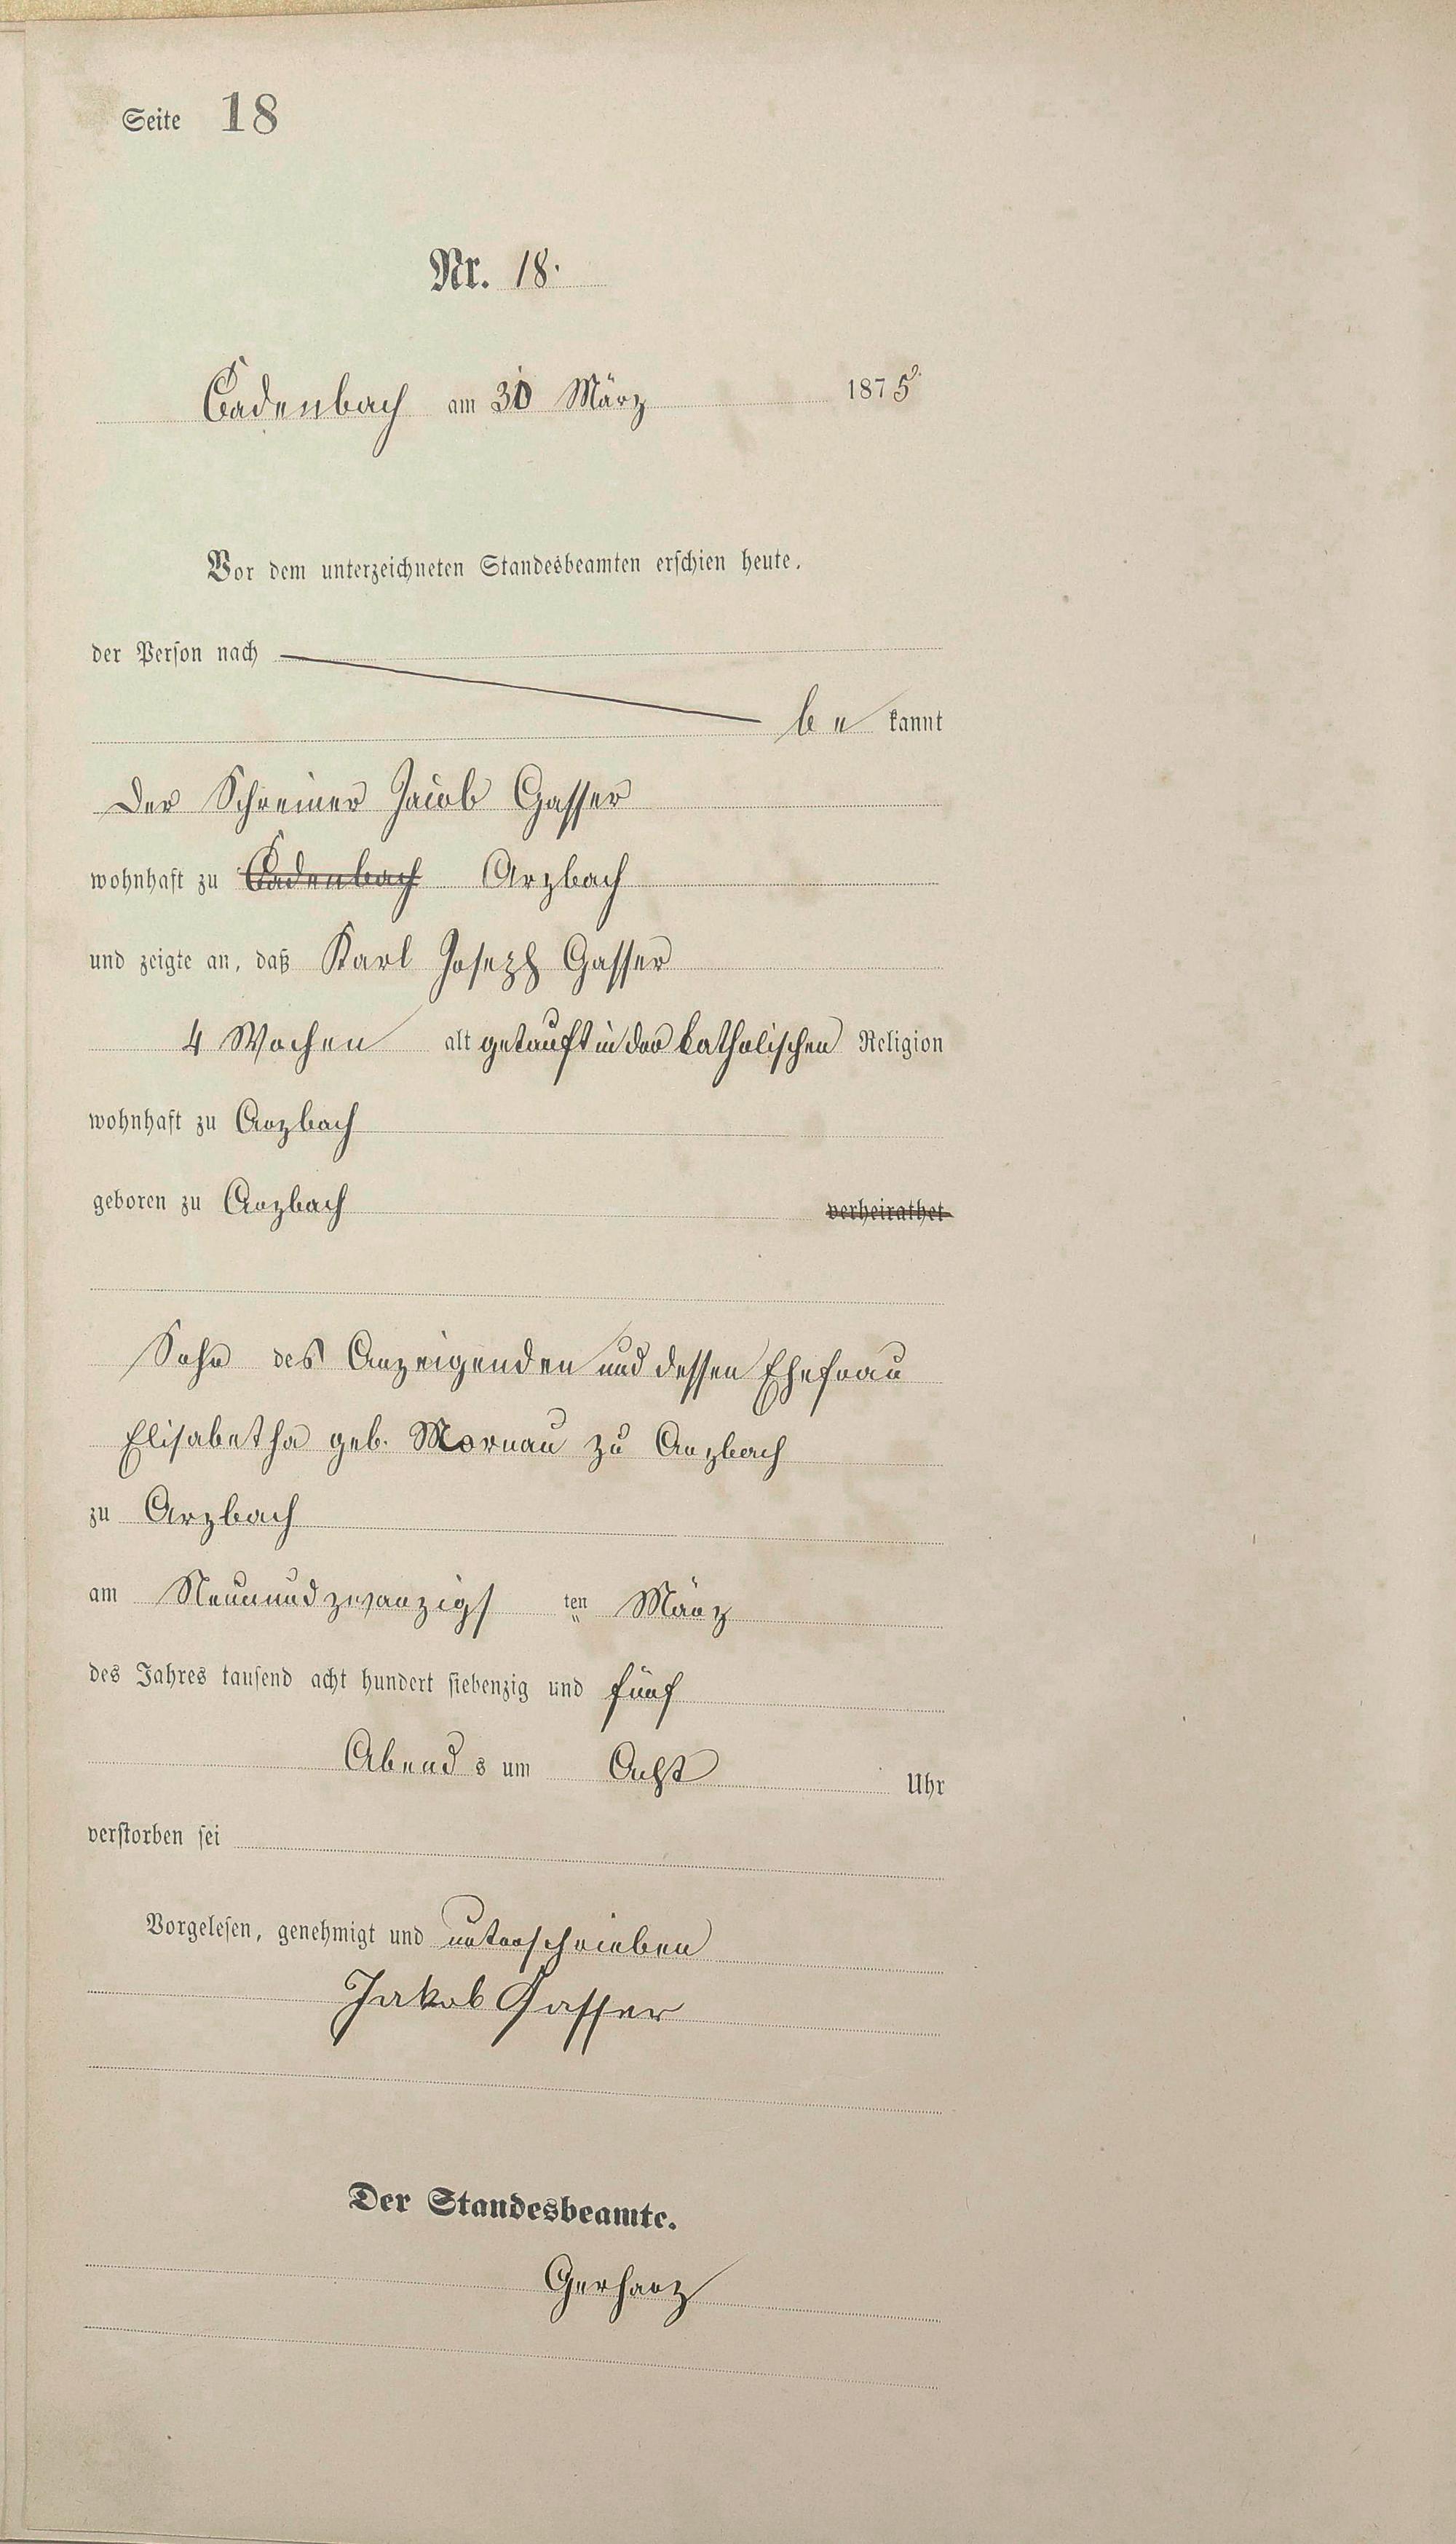 Seite 18
Nr. 18.
Cadenbach am 30 März 1875.
Vor dem unterzeichneten Standesbeamten erschien heute,
der Person nach
be kannt
Der Schreiner Jacob Gasser
wohnhaft zu Cadenbach Arzbach
und zeigte an, daß Karl Joseph Gasser
4 Wochen alt getauft in der katholischen Religion
wohnhaft zu Arzbach
geboren zu Arzbach verheirathet
Sohn des Anzeigenden und dessen Ehefrau
Elisabetha geb. Mornau zu Arzbach
zu Arzbach
am Neunundzwanzigs ten März
des Jahres tausend acht hundert siebenzig und fünf
Abend s um Acht Uhr
verstorben sei
Vorgelesen, genehmigt und unterschrieben
Jakob Gasser
Der Standesbeamte.
Gerharz